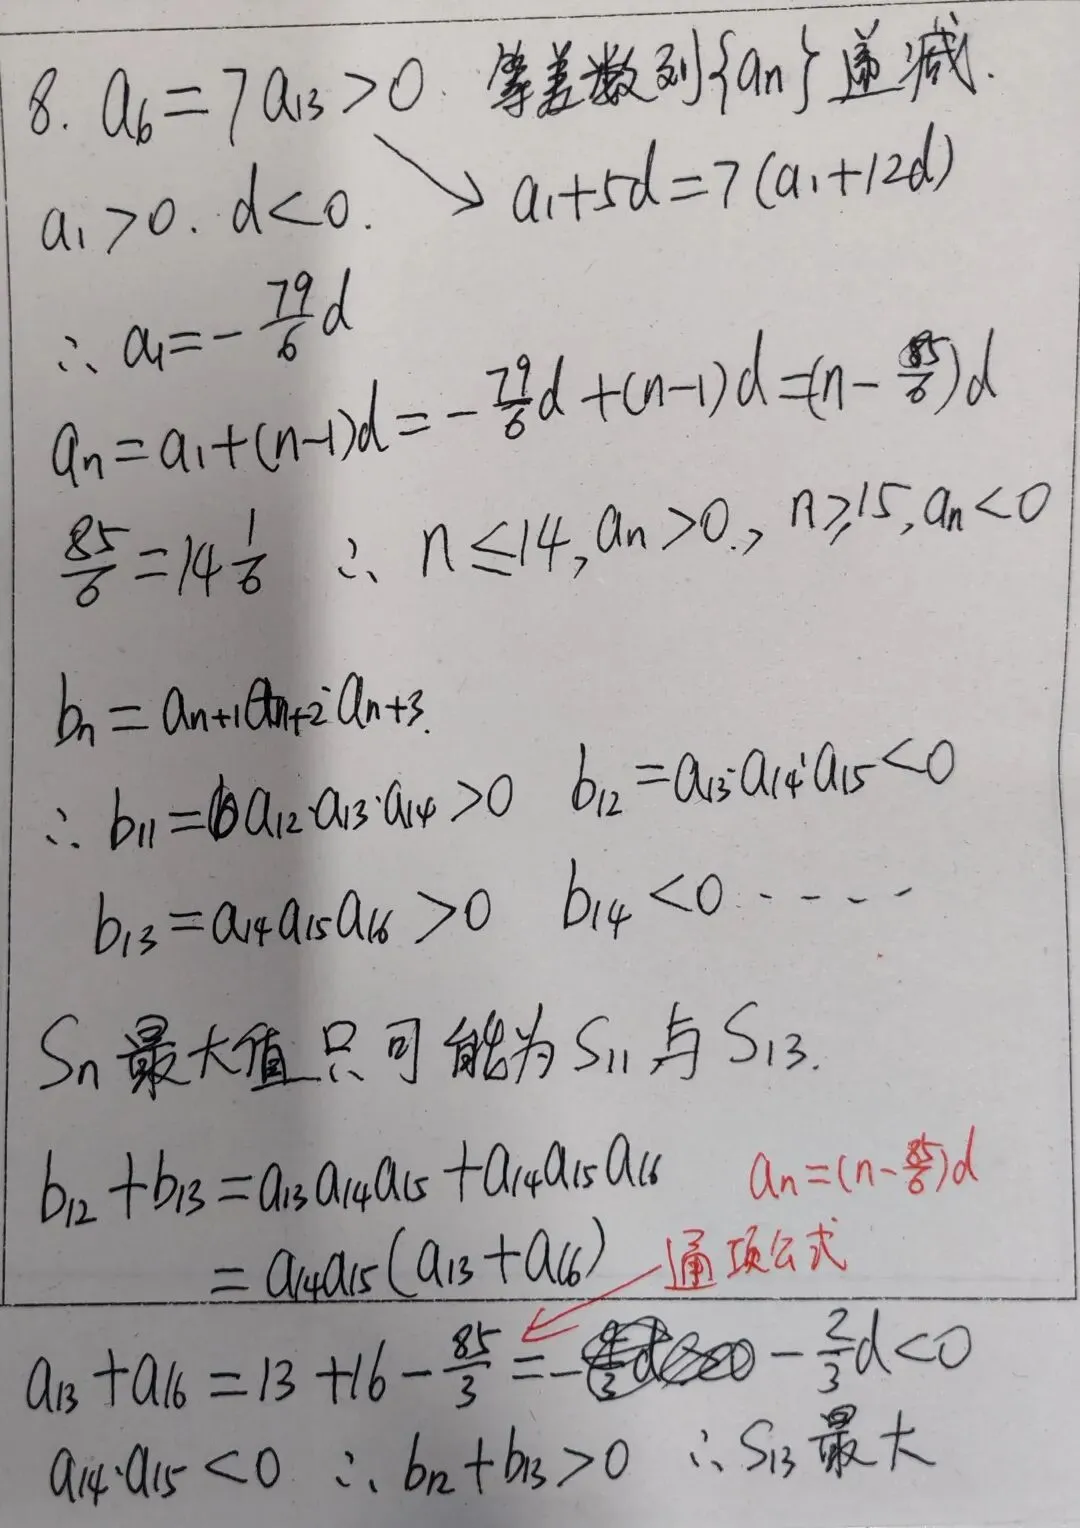 8. a₆=7a₁₃>0. 等差数列{aₙ}递减.
a₁>0. d<0. ↘ a₁+5d=7(a₁+12d)
∴ a₁=-79/6 d
aₙ=a₁+(n-1)d=-79/6 d+(n-1)d=(n-85/6)d
85/6=14 1/6 ∴ n≤14,aₙ>0., n≥15,aₙ<0
bₙ=aₙ₊₁aₙ₊₂·aₙ₊₃.
∴ b₁₁=a₁₂·a₁₃·a₁₄>0 b₁₂=a₁₃·a₁₄·a₁₅<0
b₁₃=a₁₄a₁₅a₁₆>0 b₁₄<0 ·----
Sₙ最大值只可能为S₁₁与S₁₃.
b₁₂+b₁₃=a₁₃a₁₄a₁₅+a₁₄a₁₅a₁₆ aₙ=(n-85/6)d
=a₁₄a₁₅(a₁₃+a₁₆) 通项公式
a₁₃+a₁₆=13+16-85/3=-2/3 d<0
a₁₄·a₁₅<0 ∴ b₁₂+b₁₃>0 ∴S₁₃最大